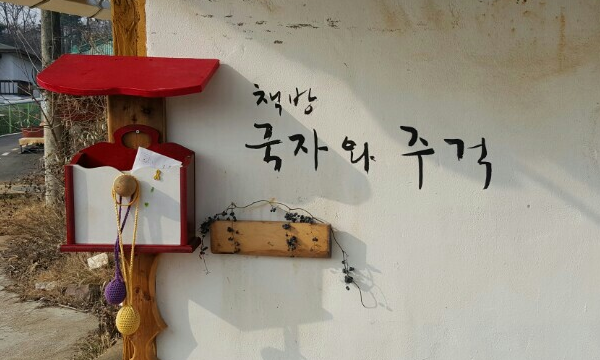 책방
국자와 주걱